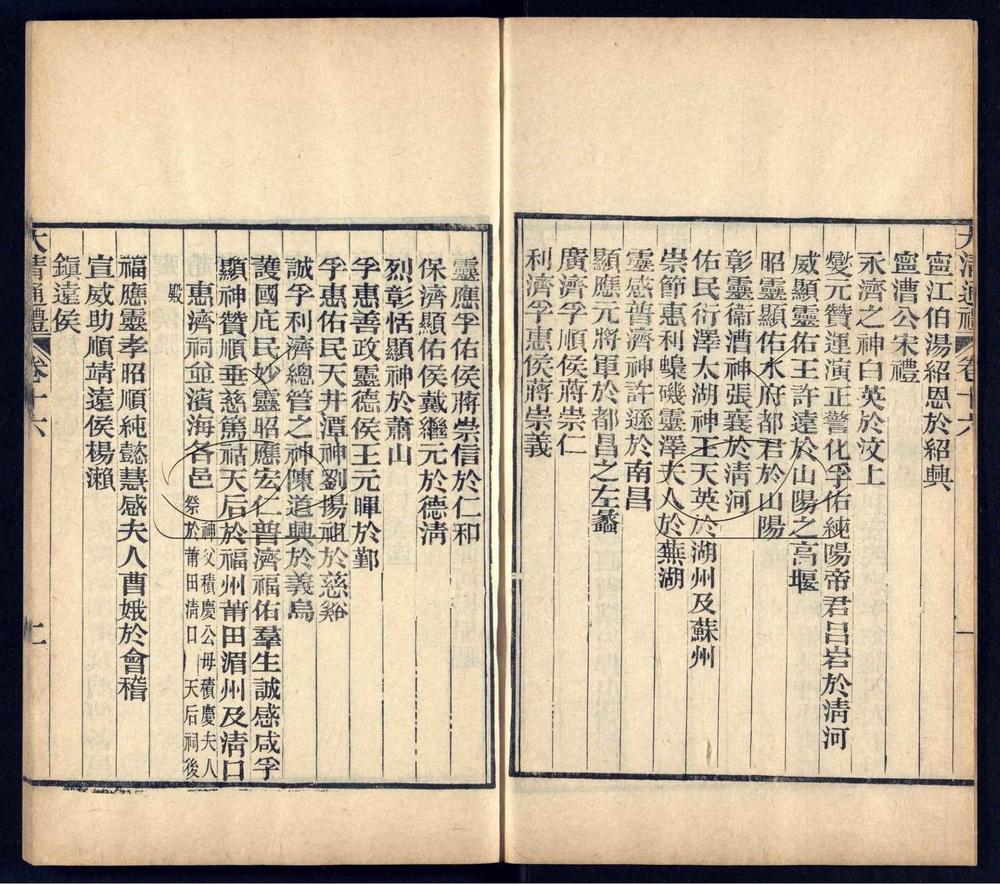 大淸通禮 卷十六
寧江伯湯紹恩於紹興
寧漕公宋禮
永濟之神白英於汶上
燮元贊運演正警化孚佑純陽帝君吕岩於淸河
威顯靈佑王許遠於山陽之高堰
昭靈顯佑水府都君於山陽
彰靈衞漕神張襄於淸河
佑民衍澤太湖神王天英於湖州及蘇州
崇節惠利蟂磯靈澤夫人於蕪湖
靈感普濟神許遜於南昌
顯應元將軍於都昌之左蠡
廣濟孚順侯蔣崇仁
利濟孚惠侯蔣崇義
靈應孚佑侯蔣崇信於仁和
保濟顯佑侯戴繼元於德淸
烈彰恬顯神於蕭山
孚惠善政靈德侯王元暐於鄞
孚惠佑民天井潭神劉揚祖於慈谿
誠孚利濟總管之神陳道興於義烏
護國庇民妙靈昭應宏仁普濟福佑羣生誠感咸孚
顯神贊順垂慈篤祜天后於福州莆田湄州及淸口
惠濟祠並濱海各邑 神父積慶公母積慶夫人
祭於莆田淸口 天后祠後
殿
福應靈孝昭順純懿慧感夫人曹娥於會稽
宣威助順靖遠侯楊瀨
鎮遠侯
大淸通禮 卷十六